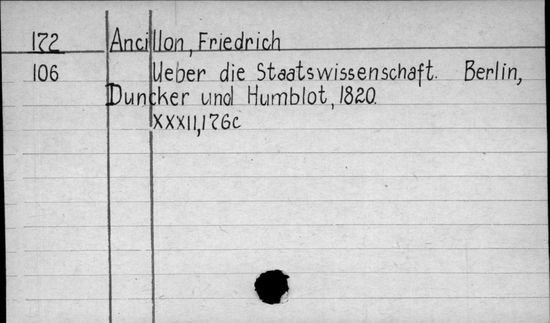 172 Ancillon, Friedrich
106 Ueber die Staatswissenschaft. Berlin,
Duncker und Humblot, 1820.
XXXII,176c